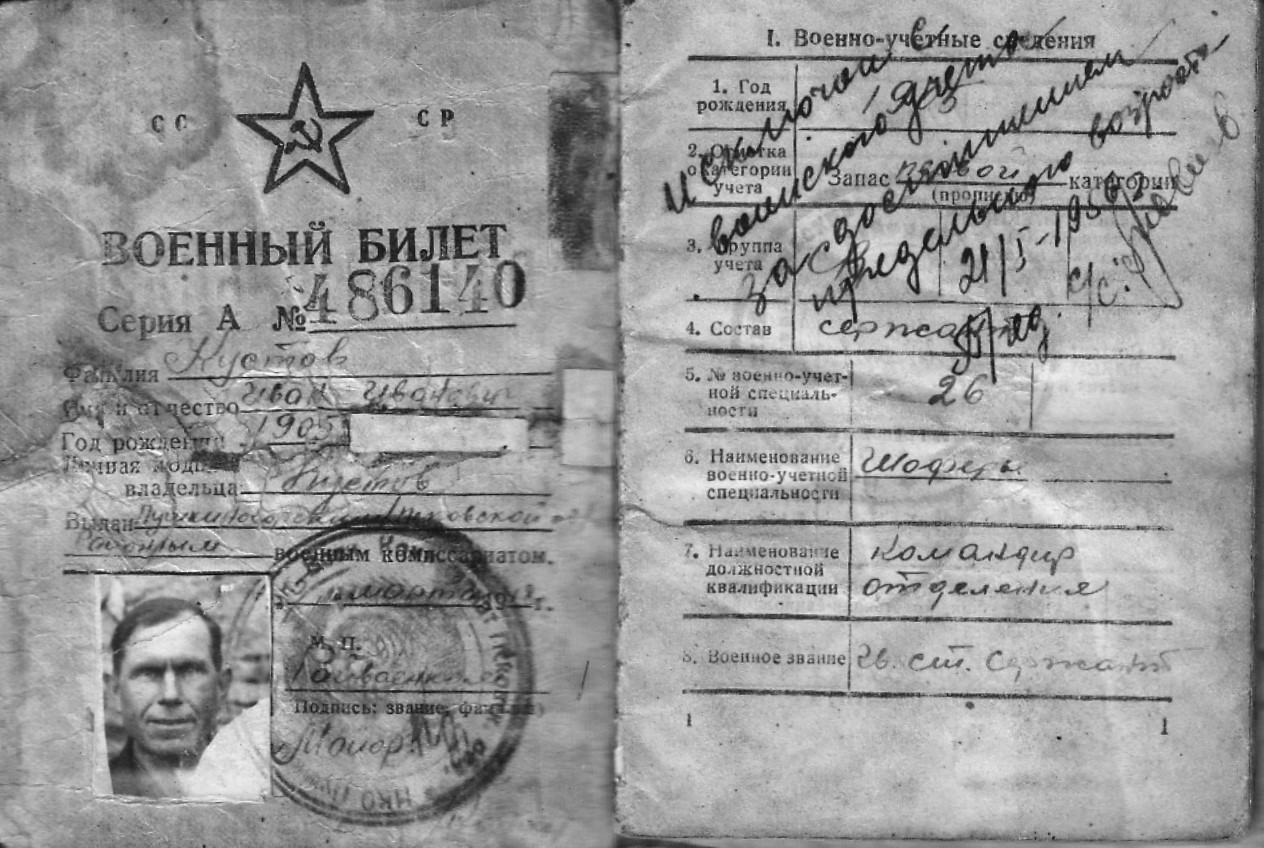 СС СР
ВОЕННЫЙ БИЛЕТ
Серия А № 486140
Фамилия Кустов
Имя и отчество Иван Иванович
Год рождения 1905
Личная подпись
владельца Кустов
Выдан Пушкиногорским Псковской
Районным военным комиссариатом.
марта г.
М. П.
Подпись: звание,
Майор
I. Военно-учетные сведения
1. Год
рождения
2. Отметка
о категории
учета
Запас первой категории
(прописью)
3. Группа
учета
Исключён с
воинского учета
за достижением
предельного возраста
4. Состав сержант
5. № военно-учет-
ной специаль-
ности
26
6. Наименование
военно-учетной
специальности
Шоферы
7. Наименование
должностной
квалификации
командир
отделения
8. Военное звание Гв. ст. сержант
1 1